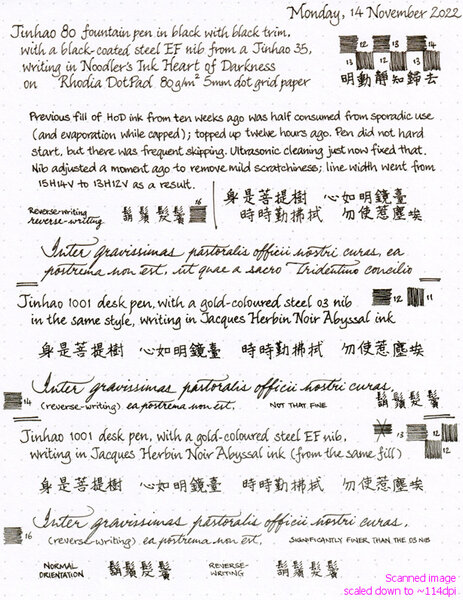 Monday, 14 November 2022
Jinhao 80 fountain pen in black with black trim,
with a black-coated steel EF nib from a Jinhao 35,
writing in Noodler's Ink Heart of Darkness
on Rhodia DotPad 80g/m² 5mm dot grid paper
12 13
13 12 14
明動靜知歸去
Previous fill of HoD ink from ten weeks ago was half consumed from sporadic use
(and evaporation while capped); topped up twelve hours ago. Pen did not hard
start, but there was frequent skipping. Ultrasonic cleaning just now fixed that.
Nib adjusted a moment ago to remove mild scratchiness; line width went from
15H14V to 13H12V as a result.
Reverse-writing
reverse-writing
鬍鬚髮鬢
16
身是菩提樹 心如明鏡臺
時時勤拂拭 勿使惹塵埃
Inter gravissimas pastoralis officii nostri curas, ea
postrema non est, ut quae a sacro Tridentino concilio
Jinhao 1001 desk pen, with a gold-coloured steel 03 nib
12 11
in the same style, writing in Jacques Herbin Noir Abyssal ink
身是菩提樹 心如明鏡臺 時時勤拂拭 勿使惹塵埃
Inter gravissimas pastoralis officii nostri curas,
14 (reverse-writing) ea postrema non est, NOT THAT FINE 鬍鬚髮鬢
Jinhao 1001 desk pen, with a gold-coloured steel EF nib,
13 12
writing in Jacques Herbin Noir Abyssal ink (from the same fill)
12
身是菩提樹 心如明鏡臺 時時勤拂拭 勿使惹塵埃
Inter gravissimas pastoralis officii nostri curas,
16 (reverse-writing) ea postrema non est, SIGNIFICANTLY FINER THAN THE 03 NIB
NORMAL ORIENTATION 鬍鬚髮鬢 REVERSE-WRITING 鬍鬚髮鬢
Scanned image
scaled down to ~114dpi